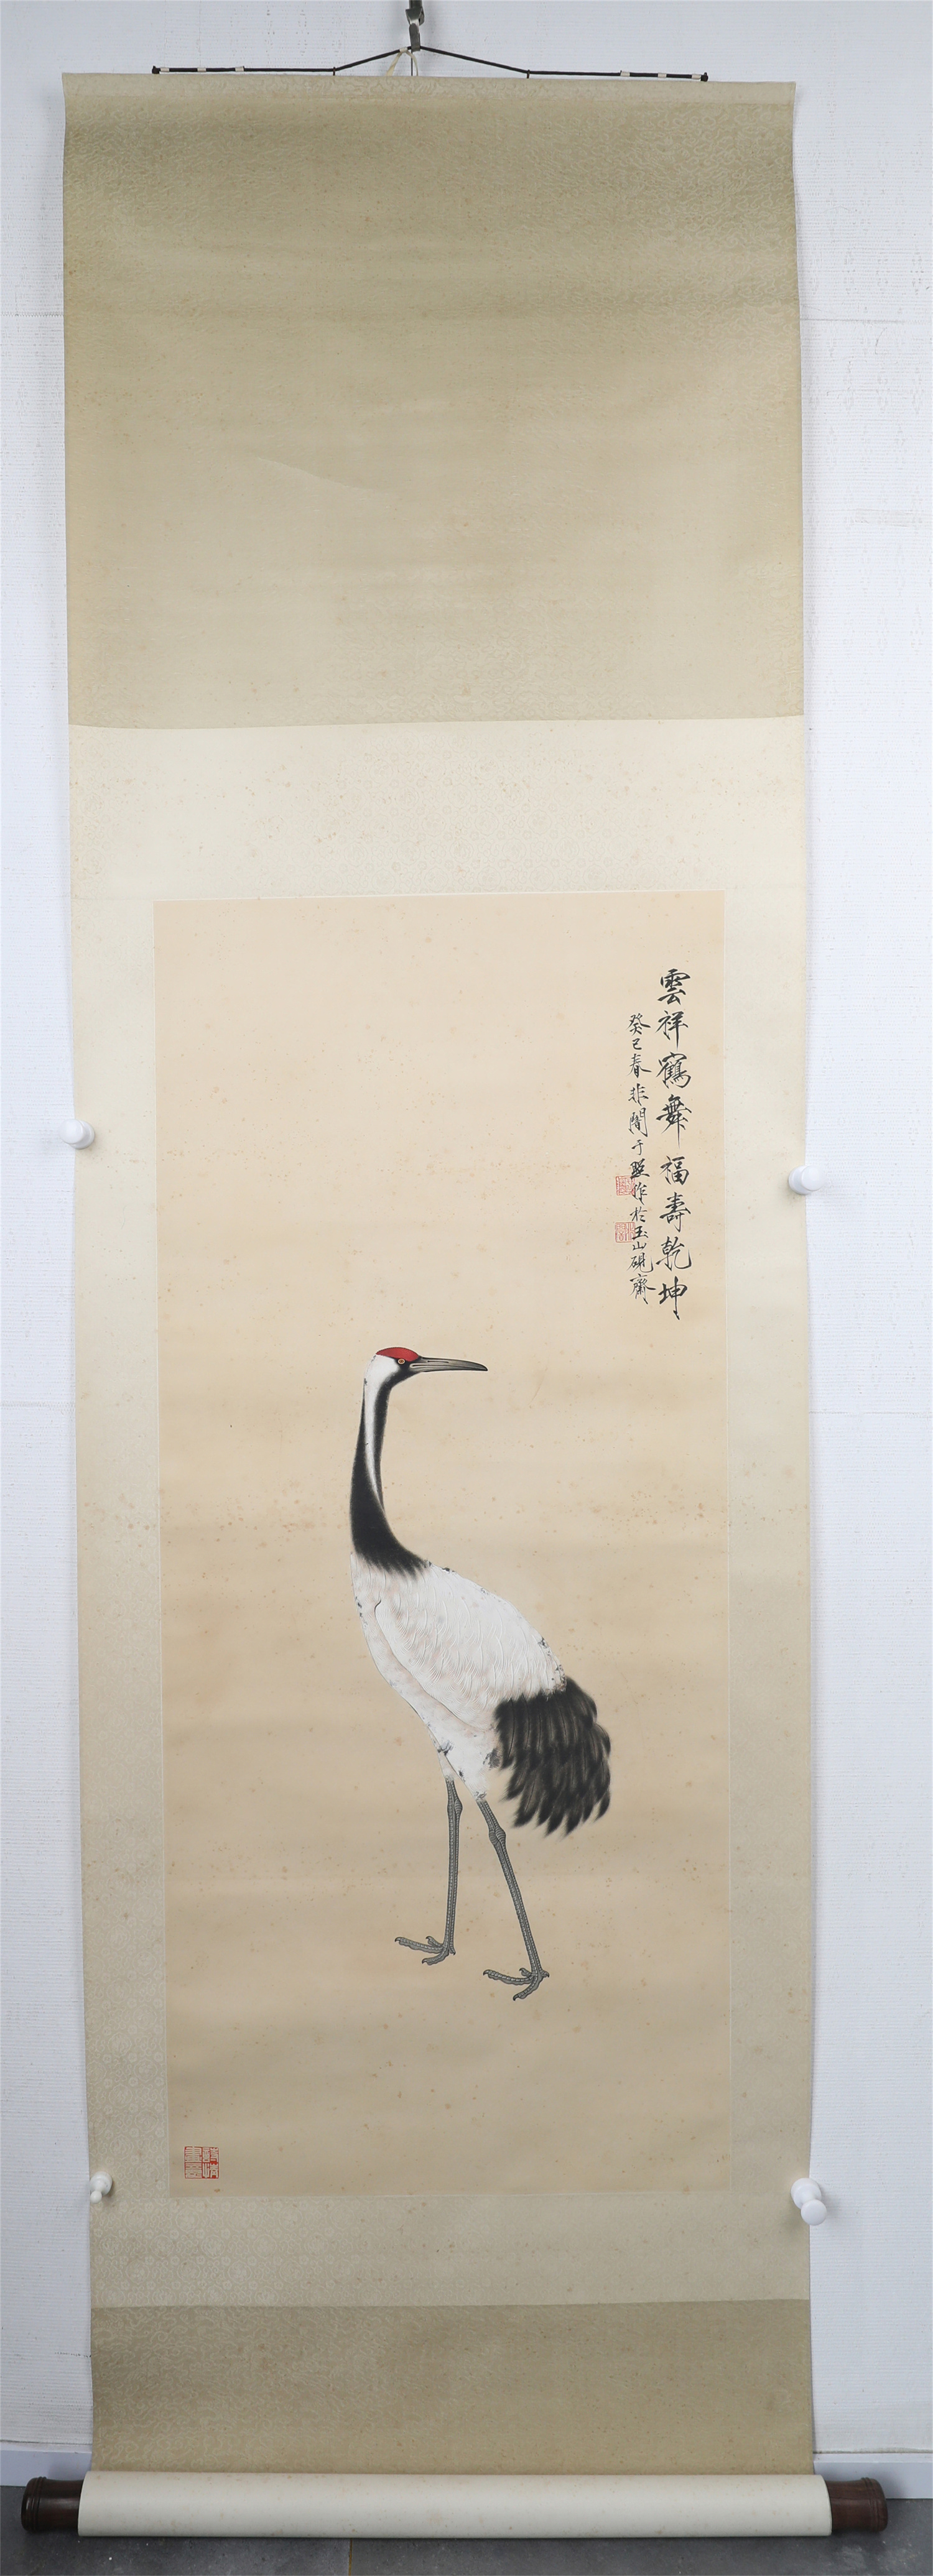 雲祥鶴舞 福壽乾坤
癸巳春非闇于照作於玉山硯齋